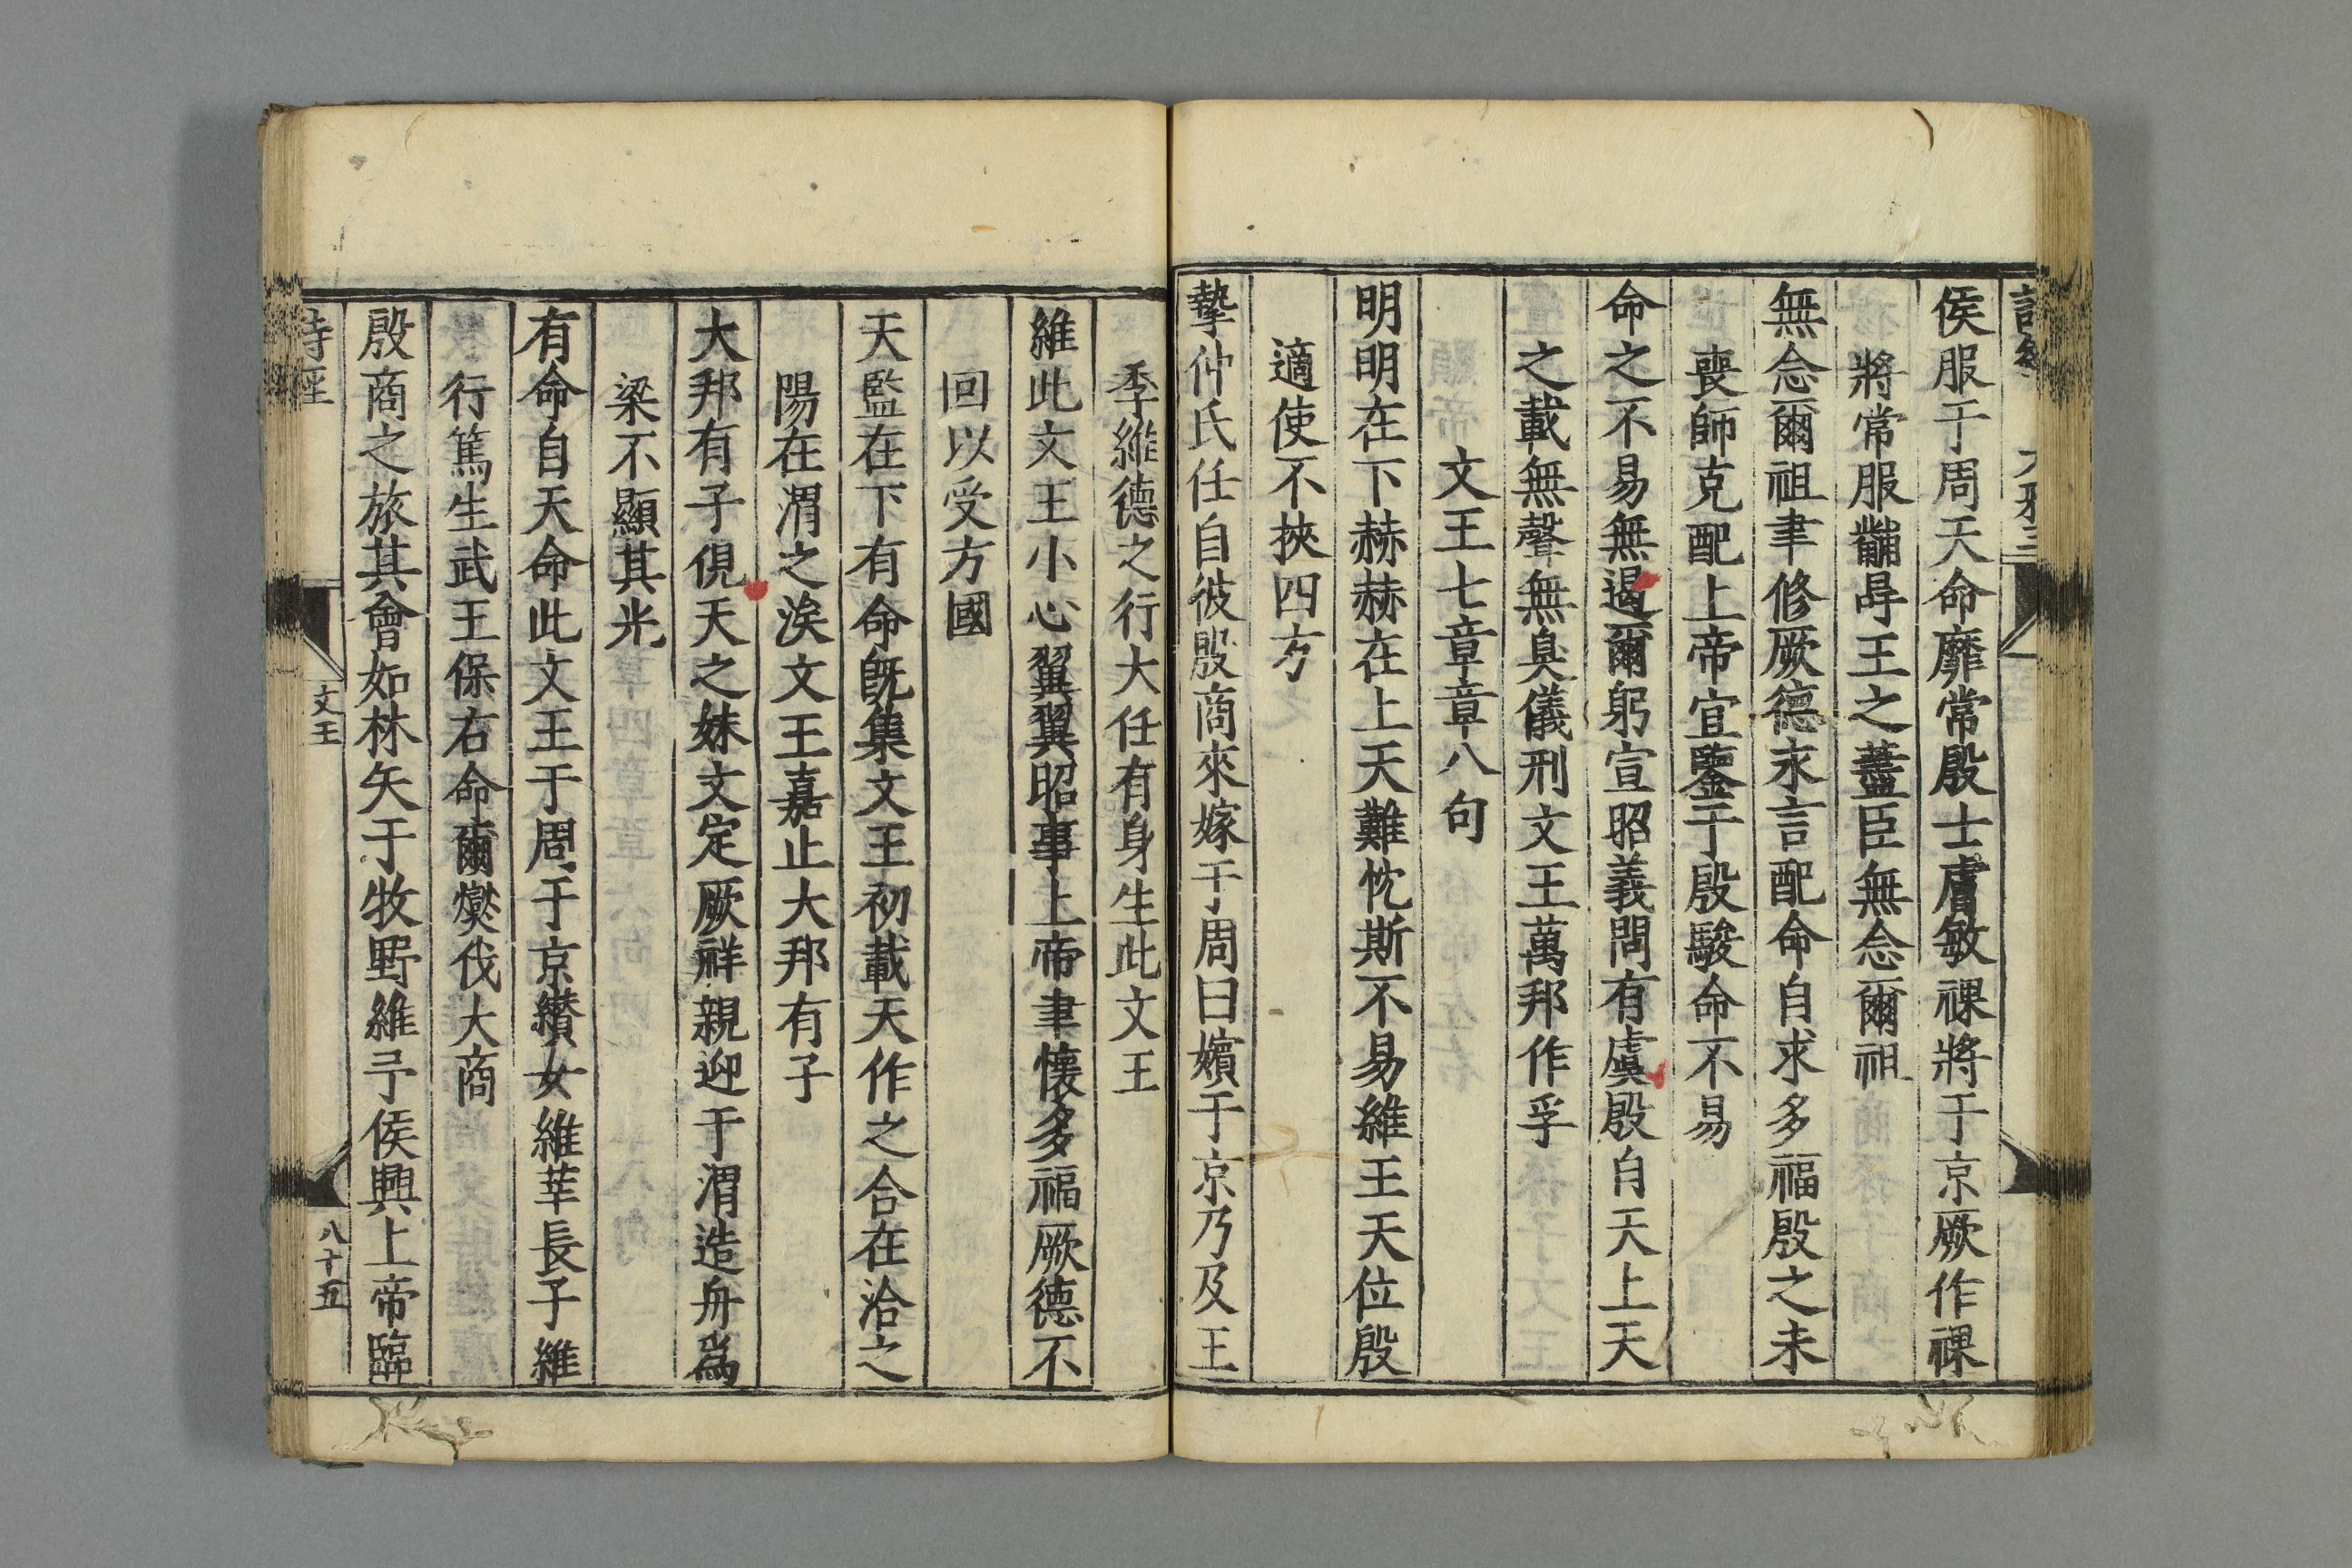 詩經 大雅三
侯服于周天命靡常殷士膚敏祼將于京厥作祼
將常服黼冔王之藎臣無念爾祖
無念爾祖聿修厥德永言配命自求多福殷之未
喪師克配上帝宜鑒于殷駿命不易
命之不易無遏爾躬宣昭義問有虞殷自天上天
之載無聲無臭儀刑文王萬邦作孚
文王七章章八句
明明在下赫赫在上天難忱斯不易維王天位殷
適使不挾四方
摯仲氏任自彼殷商來嫁于周曰嬪于京乃及王
季維德之行大任有身生此文王
維此文王小心翼翼昭事上帝聿懷多福厥德不
回以受方國
天監在下有命旣集文王初載天作之合在洽之
陽在渭之涘文王嘉止大邦有子
大邦有子俔天之妹文定厥祥親迎于渭造舟爲
梁不顯其光
有命自天命此文王于周于京纘女維莘長子維
行篤生武王保右命爾燮伐大商
殷商之旅其會如林矢于牧野維予侯興上帝臨
詩經 文王 八十五